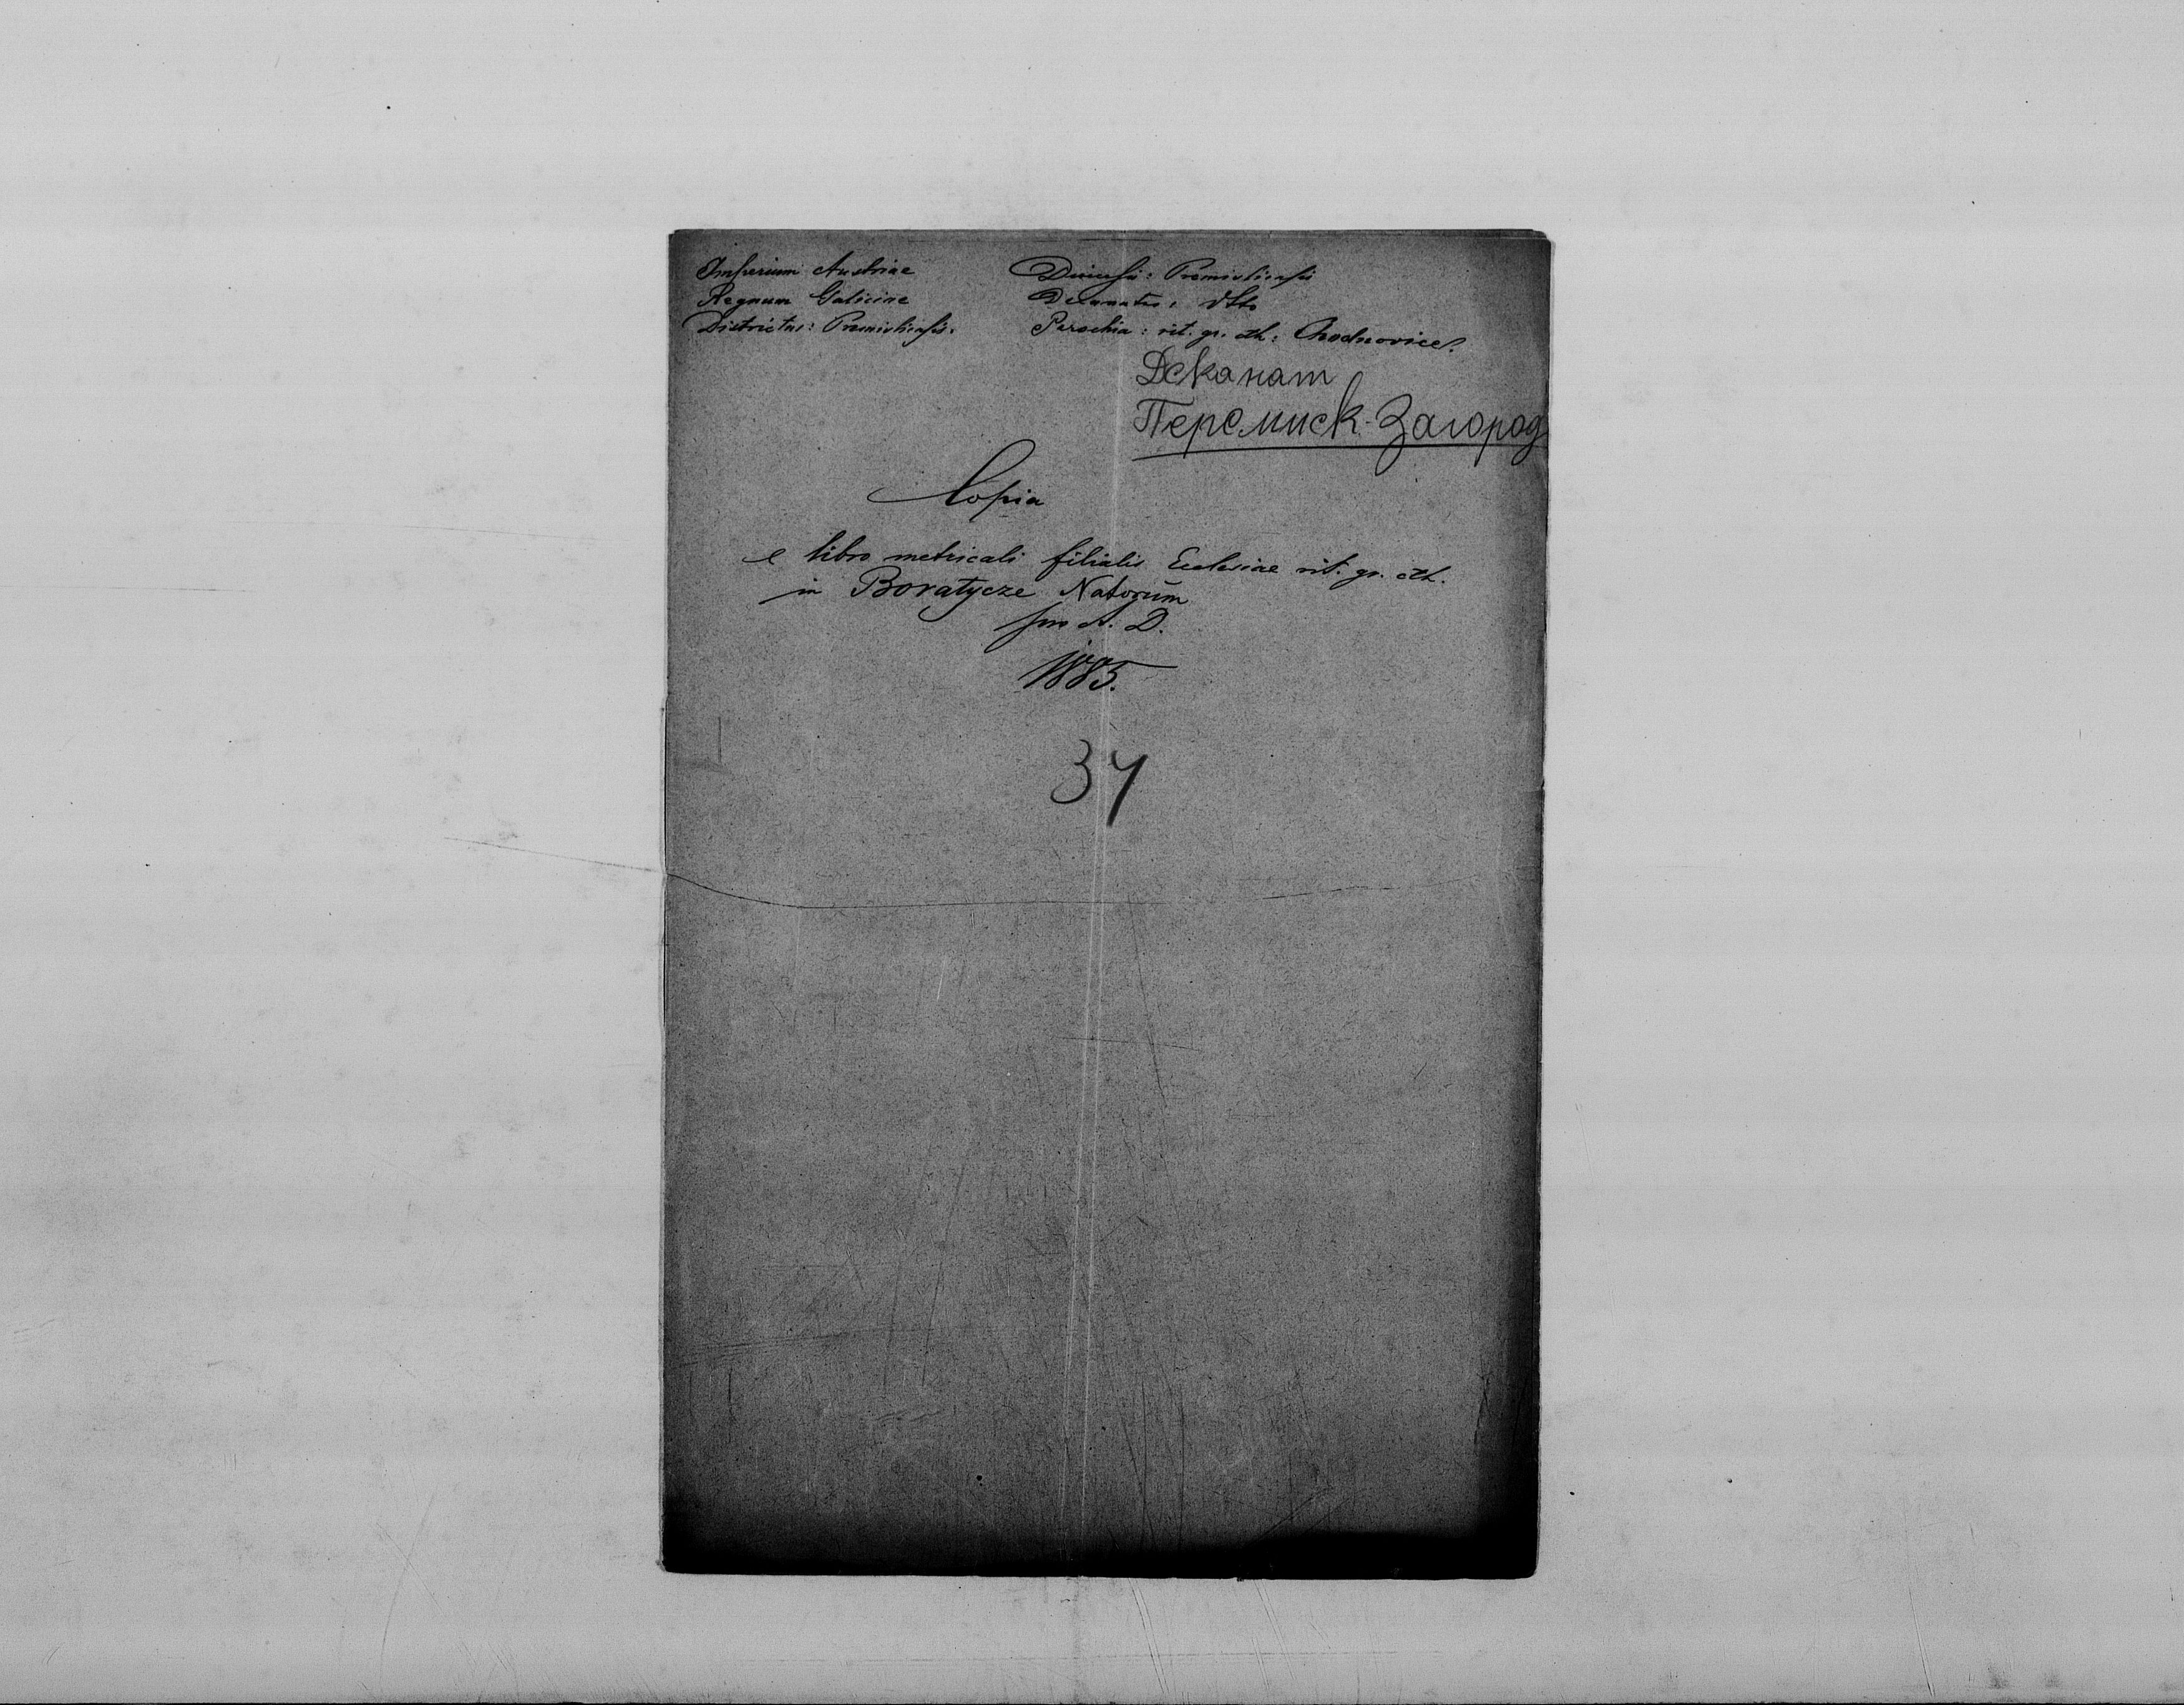 Imperium Austriae
Regnum Galiciae
Districtus: Premisliensis.
Diecesis: Premisliensis
Decanatus: dtto
Parochia: rit. gr. cth: Chodnovice.
Деканат
Перемиск-Загород
Copia
e libro metricali filialis Ecclesiae rit. gr. cth.
in Boratycze Natorum
pro A. D.
1885.
34